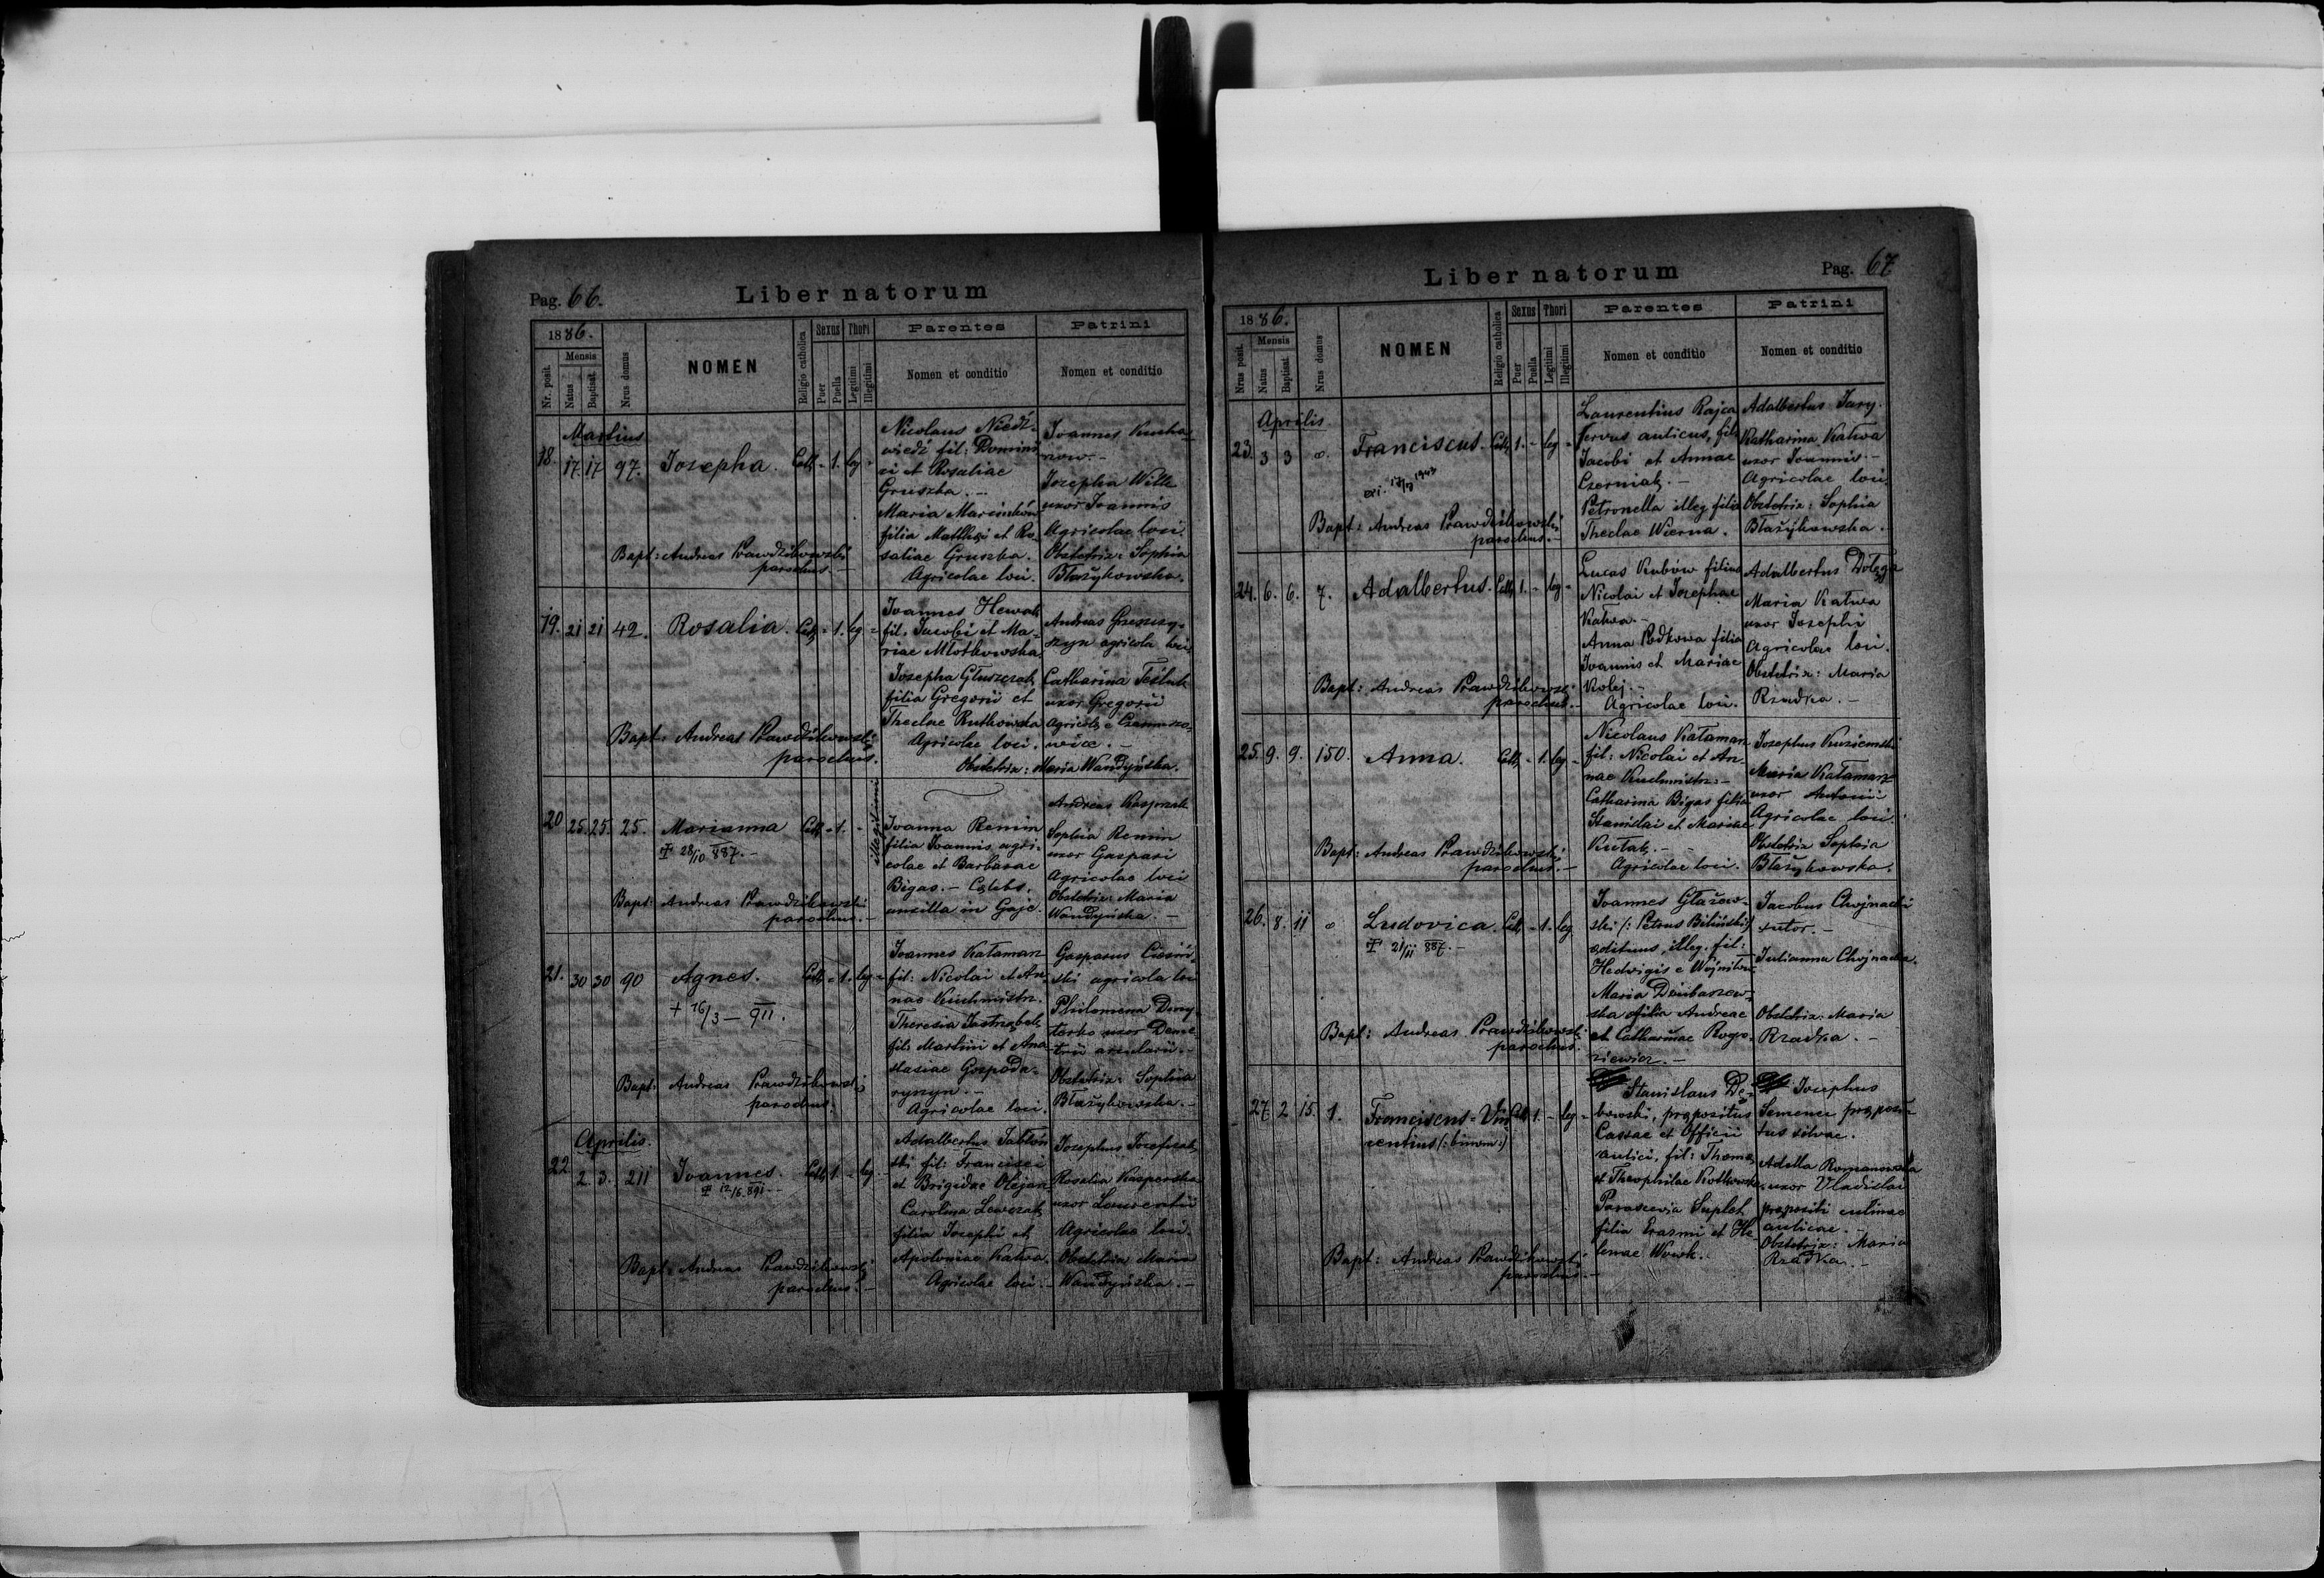 Pag. 66.
Liber natorum
1886.
Nr. posit.
Mensis
Natus
Baptisat.
Nrus domus
NOMEN
Religio catholica
Sexus
Puer
Puella
Thori
Legitimi
Illegitimi
Parentes
Nomen et conditio
Patrini
Nomen et conditio
Martius
18. 17. 17 97. Josepha. Cath - 1. leg -
Bapt: Andreas Prawdzikowski
parochus. -
Nicolaus Niedź-
wiedź fil: Domini-
ci et Rosaliae
Gruszka. -
Maria
filia Matthaei et Ro-
saliae Gruszka.
Agricolae loci.
Joannes
Josepha Wilk
uxor Joannis
Agricolae loci.
Obstetrix: Sophia
Błażykowska.
19. 21 21 42. Rosalia. Cath - 1. leg -
Bapt: Andreas Prawdzikowski
parochus.
Joannes Hewak
fil. Jacobi et Ma-
riae Młotkowska.
Josepha Głuszczak
filia Gregorii et
Theclae Rutkowska
Agricolae loci.
Andreas
agricola loci.
Catharina
uxor Gregorii
Obstetrix: Maria Wandyńska.
20 25. 25. 25. Marianna Cath - 1. - illegitimi
‡ 28/10 887. -
Bapt: Andreas Prawdzikowski
parochus. -
Joanna Remin
filia Joannis agri-
colae et Barbarae
Bigas. -
ancilla in Gaje.
Andreas Kasprzak
Sophia Remin
uxor Gaspari
Agricolae loci
Obstetrix: Maria
Wandyńska. -
21. 30 30 90 Agnes. Cath - 1. leg -
+ 16/3 - 911.
Bapt: Andreas Prawdzikowski
parochus.
Joannes Kataman
fil: Nicolai et An-
nae Kuchmistrz.
Theresia Jastrzębek
fil: Martini et Ana-
stasiae Gospoda-
ryszyn. -
Agricolae loci.
Gasparus
ski agricola loci
Philomena
uxor Deme-
trii
Obstetrix: Sophia
Błażykowska. -
Aprilis.
22 2. 3. 211 Joannes. Cath 1. - leg
‡ 12/5 891. -
Bapt: Andreas Prawdzikowski
parochus. -
Adalbertus Jabłoń-
ski fil: Francisci
et Brigidae Olejarz
Carolina Lewczak
filia Josephi et
Apoloniae Katwa.
Agricolae loci. -
Josephus Jozefczak
Rosalia Kasperska
uxor Laurentii
Agricolae loci.
Obstetrix Maria
Wandyńska. -
Pag. 67
Liber natorum
1886.
Nrus posit.
Mensis
Natus
Baptisat.
Nrus domus
NOMEN
Religio catholica
Sexus
Puer
Puella
Thori
Legitimi
Illegitimi
Parentes
Nomen et conditio
Patrini
Nomen et conditio
Aprilis
23. 3 3 o. Franciscus. Cath 1. - leg -
Bapt: Andreas Prawdzikowski
parochus. -
Laurentius Rajca
servus aulicus, fil:
Jacobi et Annae
Czerniak. -
Petronella illeg. filia
Theclae Wierna.
Adalbertus Jary.
Katharina Katwa
uxor Joannis. -
Agricolae loci.
Obstetrix: Sophia
Błażykowska.
24. 6. 6. 7. Adalbertus. Cath 1. - leg -
Bapt: Andreas Prawdzikowski
parochus. -
Lucas Kubów filius
Nicolai et Josephae
Katwa. -
Anna Podkowa filia
Joannis et Mariae
Kolej. -
Agricolae loci.
Adalbertus Dołęga
Maria Katwa
uxor Josephi
Agricolae loci.
Obstetrix: Maria
Rzadka. -
25. 9. 9. 150. Anna. Cath - 1. leg -
Bapt: Andreas Prawdzikowski
parochus. -
Nicolaus Kataman
fil: Nicolai et An-
nae Kuchmistrz. -
Catharina Bigas filia
Stanislai et Mariae
Kutak. -
Agricolae loci.
Josephus
Maria Kataman
uxor Antonii
Agricolae loci.
Obstetrix Sophia
Błażykowska.
26. 8. 11 o Ludovica. Cath - 1. leg
‡ 21/11 887. -
Bapt: Andreas Prawdzikowski
parochus.
Joannes Głażew-
ski (: Petrus Biliński:)
aedituus, illeg. fil:
Hedwigis e
Maria Dziubaszew-
ska filia Andreae
et Catharinae Rogo-
ziewicz. -
Jacobus Chojnacki
sutor. -
Julianna Chojnacka.
Obstetrix: Maria
Rzadka. -
27. 2 15. 1. Franciscus-Vin- Cath 1. - leg -
centius (: binom:)
Bapt: Andreas Prawdzikowski
parochus. -
Stanislaus Dę-
bowski, praepositus
Cassae et Officii
aulici, fil: Thomae
et Theophilae Kotkowska,
Parascevia Suplat
filia Erasmi et He-
lenae Wowk. -
Josephus
Semenec praeposi-
tus silvae.
Adella Romanowska
uxor Vladislai
praepositi culinae
aulicae. -
Obstetrix: Maria
Rzadka. -